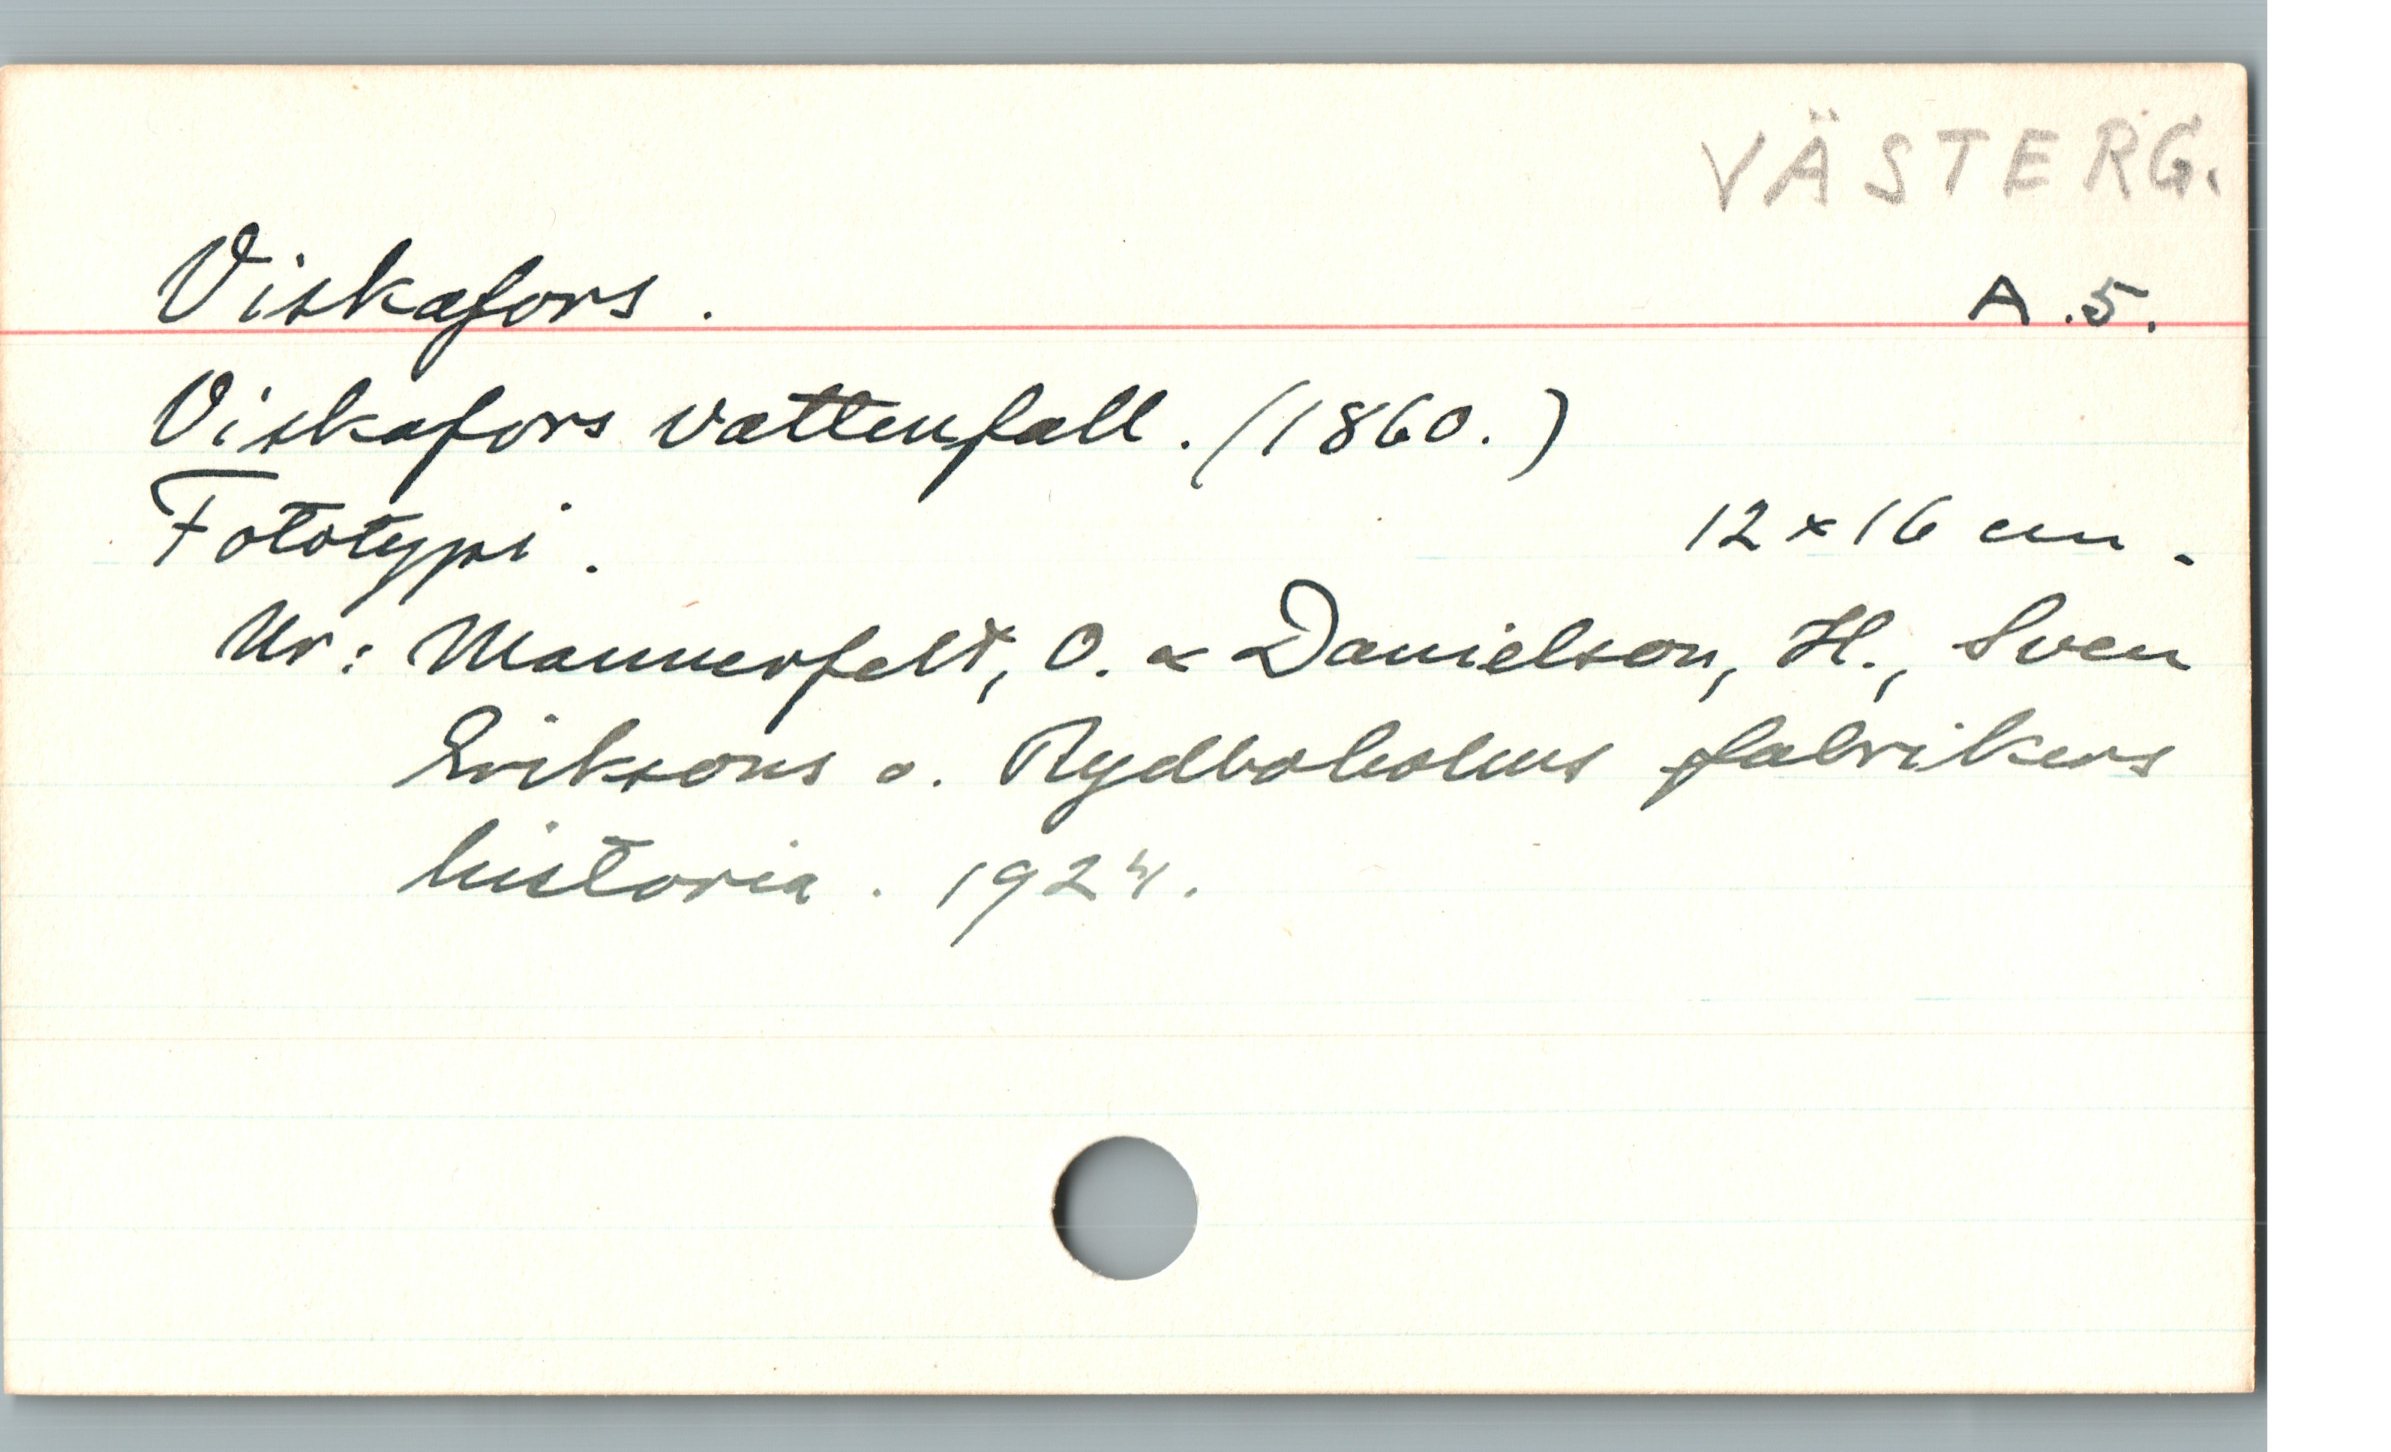 VÄSTERG.
Viskafors. A.5.
Viskafors vattenfall. (1860.)
Fototypi. 12 x 16 cm.
Ur: Mannerfelt, O. & Danielson, H., Sven
Eriksons o. Rydboholms fabrikers
historia. 1924.